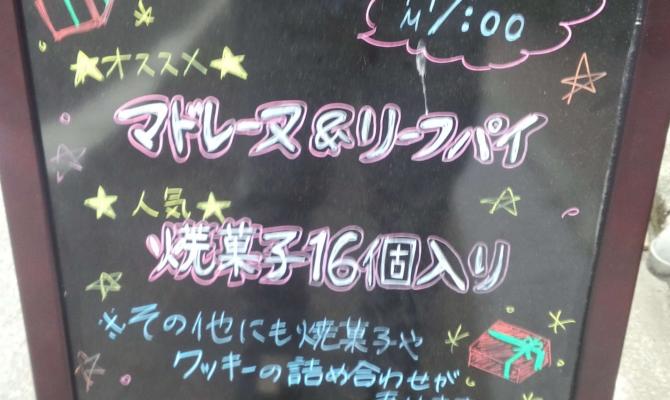 17:00
★オススメ★
マドレーヌ&リーフパイ
★人気★
焼菓子16個入り
※その他にも焼菓子や
クッキーの詰め合わせが